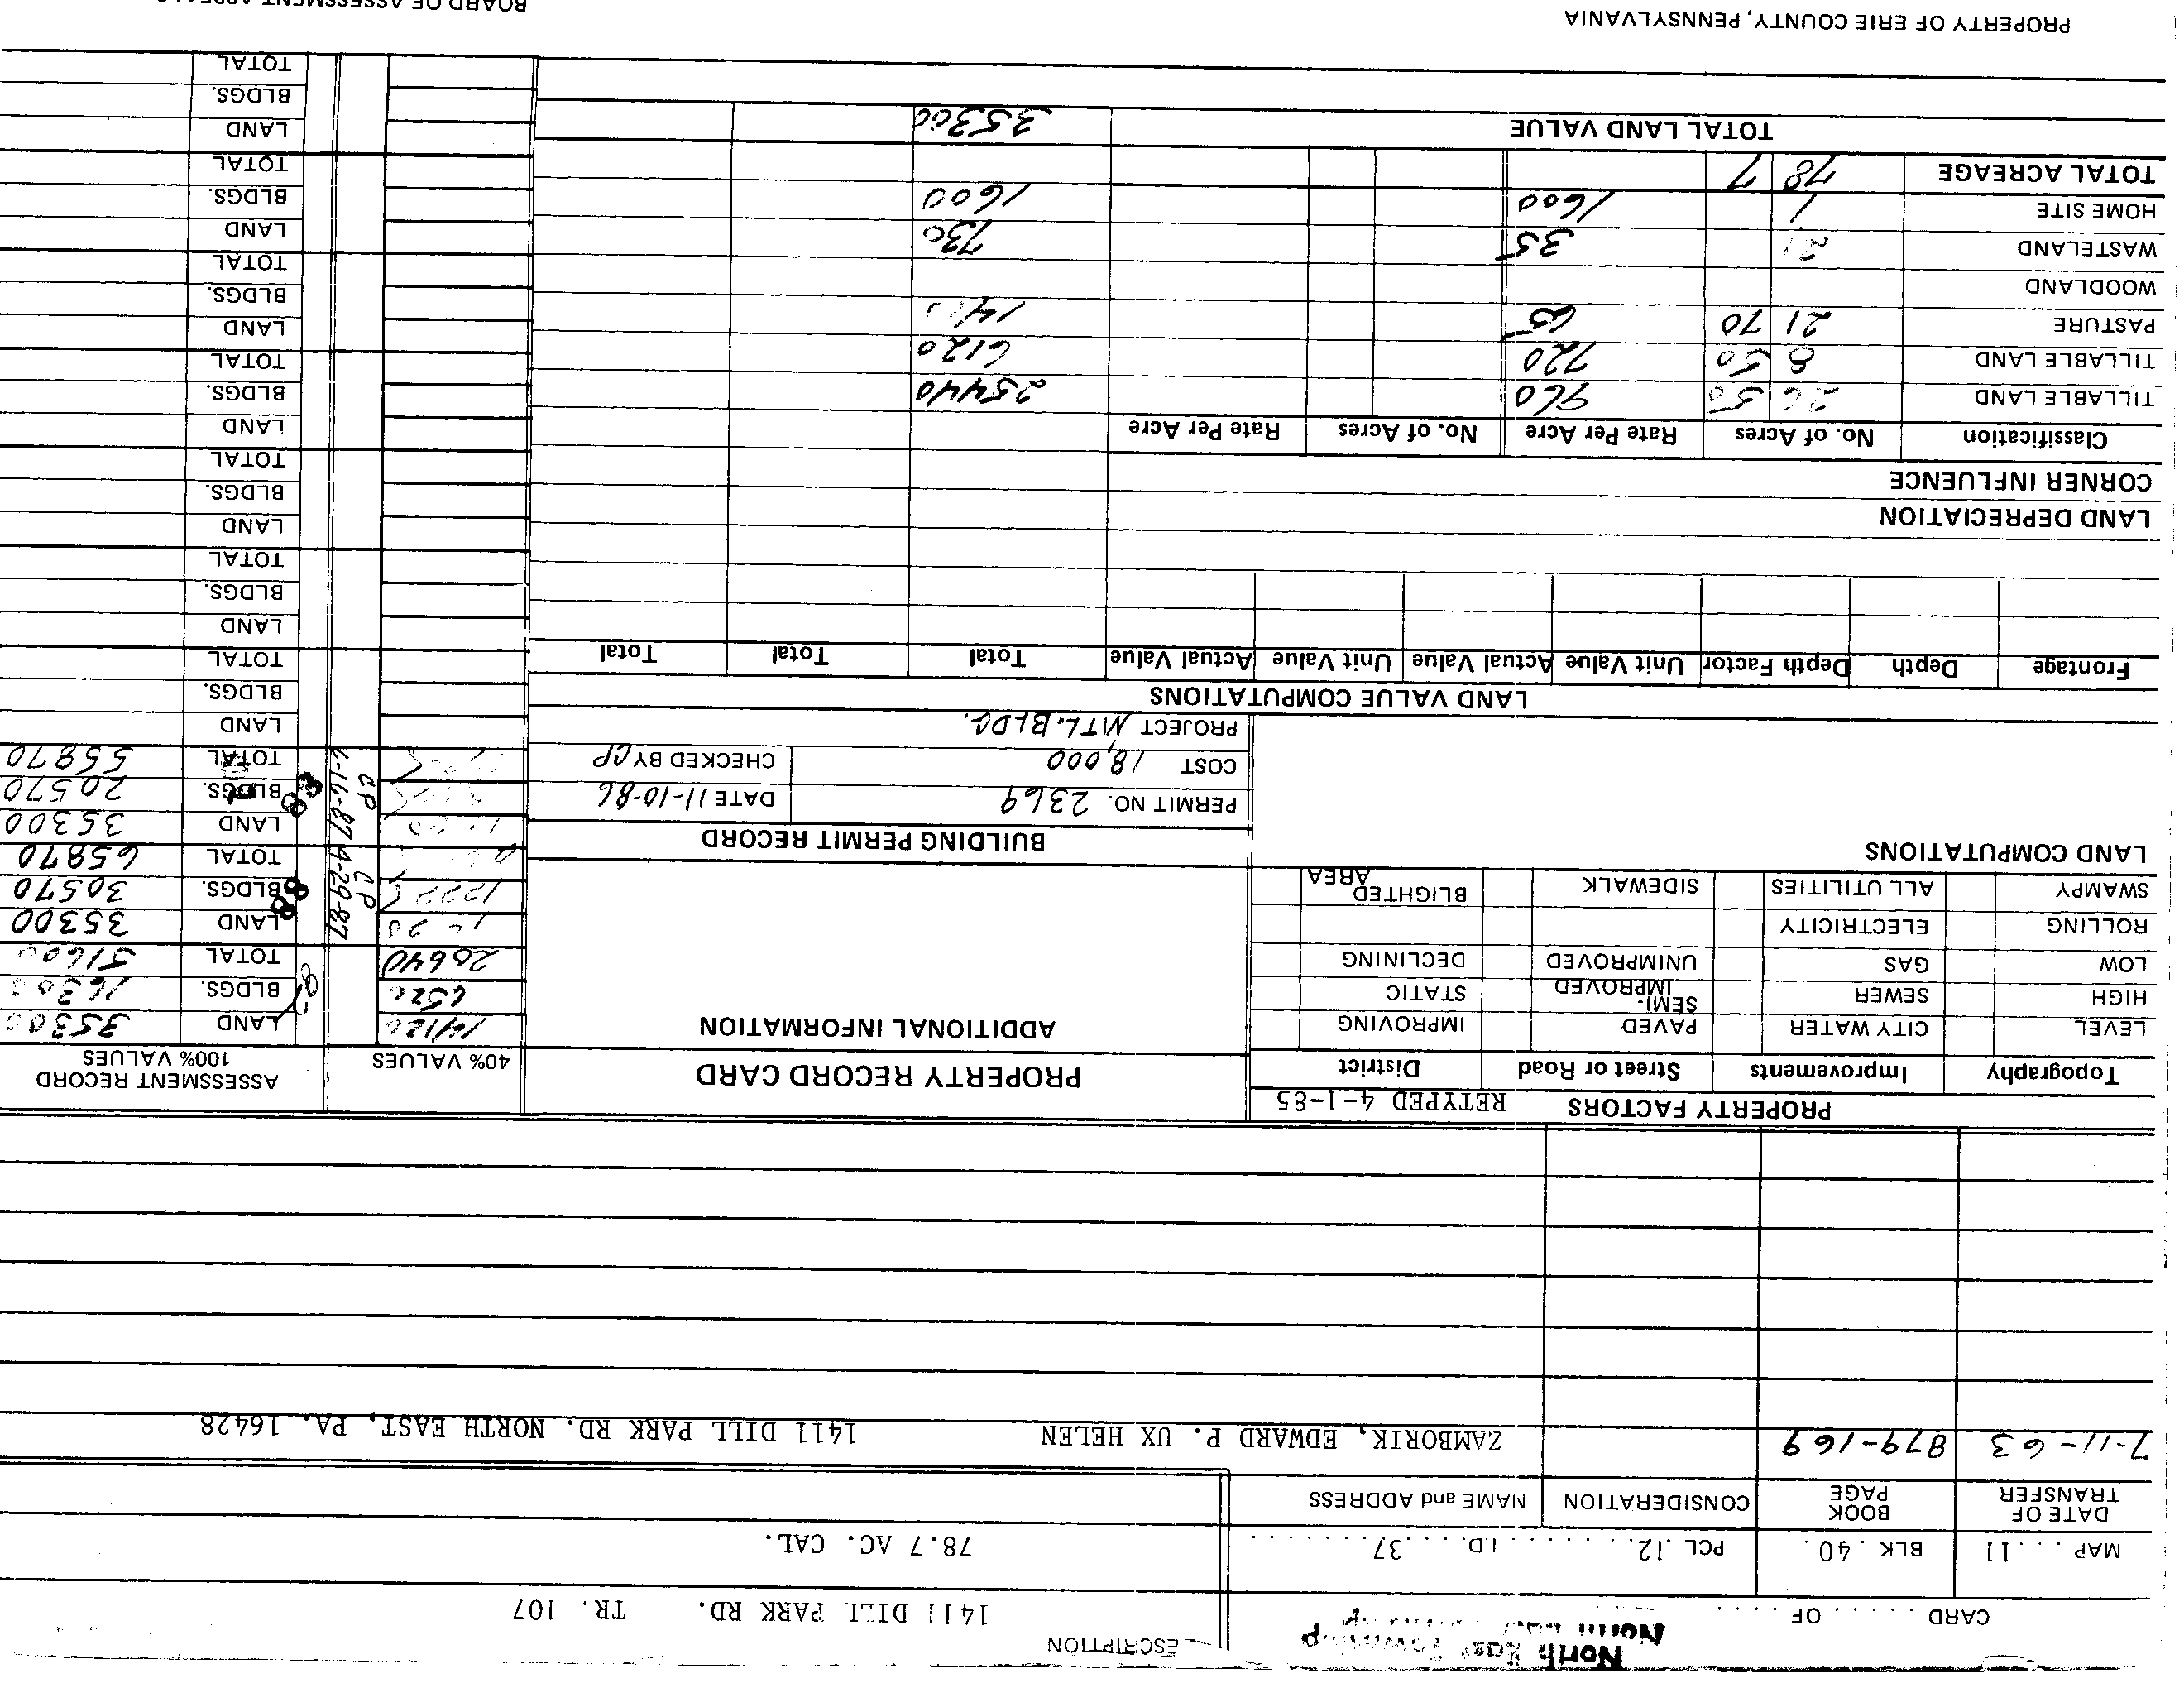 North East Township
CARD . . . . . OF . . . .
ESCRIPTION
1411 DILL PARK RD. TR. 107
MAP . . . 11 BLK . 40 . PCL .12. . . . . . . . I.D. . . . 37. . . . . . . .
78.7 AC. CAL.
DATE OF TRANSFER BOOK PAGE CONSIDERATION NAME and ADDRESS
7-11-63 879-169 ZAMBORIK, EDWARD P. UX HELEN 1411 DILL PARK RD. NORTH EAST, PA. 16428
PROPERTY FACTORS RETYPED 4-1-85
Topography Improvements Street or Road District
LEVEL CITY WATER PAVED IMPROVING
HIGH SEWER SEMI-IMPROVED STATIC
LOW GAS UNIMPROVED DECLINING
ROLLING ELECTRICITY
SWAMPY ALL UTILITIES SIDEWALK BLIGHTED AREA
LAND COMPUTATIONS
PROPERTY RECORD CARD
ADDITIONAL INFORMATION
BUILDING PERMIT RECORD
PERMIT NO. 2369 DATE 11-10-86
COST 18,000 CHECKED BY CP
PROJECT MTL. BLDG.
40% VALUES ASSESSMENT RECORD 100% VALUES
14120 LAND 35300
6520 BLDGS. 16300
20640 TOTAL 51600
LAND 35300
CP 4-29-87 88 BLDGS. 30570
TOTAL 65870
LAND 35300
CP 83 BLDGS. 20570
TOTAL 55870
LAND
BLDGS.
TOTAL
LAND
BLDGS.
TOTAL
LAND
BLDGS.
TOTAL
LAND
BLDGS.
TOTAL
LAND
BLDGS.
TOTAL
LAND
BLDGS
TOTAL
LAND
BLDGS.
TOTAL
LAND VALUE COMPUTATIONS
Frontage Depth Depth Factor Unit Value Actual Value Unit Value Actual Value Total Total Total
LAND DEPRECIATION
CORNER INFLUENCE
Classification No. of Acres Rate Per Acre No. of Acres Rate Per Acre
TILLABLE LAND 26 50 960 25440
TILLABLE LAND 8 50 720 6120
PASTURE 21 70 65
WOODLAND
WASTELAND 21 35 730
HOME SITE 1 1600 1600
TOTAL ACREAGE 78 7
TOTAL LAND VALUE 35300
PROPERTY OF ERIE COUNTY, PENNSYLVANIA
BOARD OF ASSESSMENT